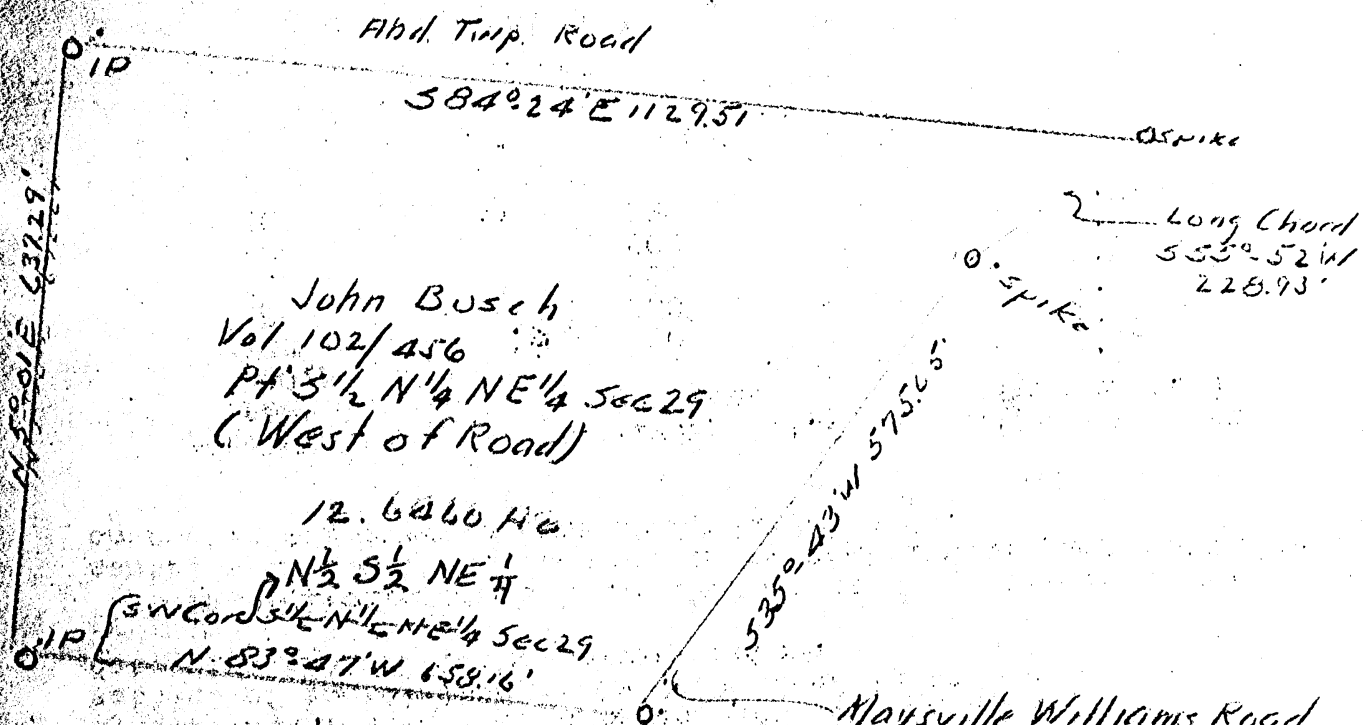 Abd. Twp. Road
IP
S84°-24'E 1129.51
spike
Long Chord
S55°-52'W
228.93'
spike
N 5°-01'E 637.29'
John Busch
Vol 102/456
Pt S 1/2 N 1/4 NE 1/4 Sec 29
(West of Road)
S35°-43'W 575.65'
12.6460 Ac
N 1/2 S 1/2 NE 1/4
SW Cor S 1/2 N 1/2 NE 1/4 Sec 29
IP
N 83°-47'W 658.16'
Maysville Williams Road